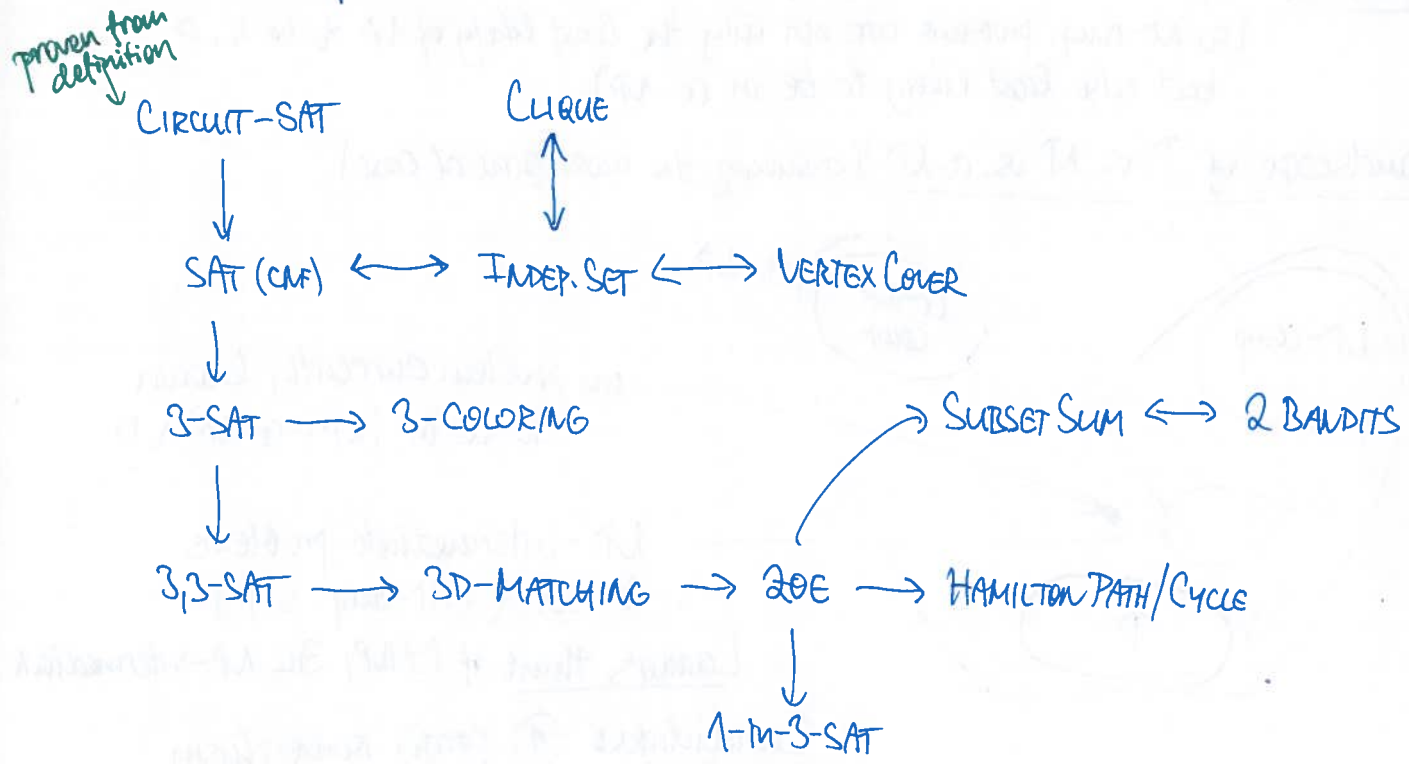 proven from
definition
CIRCUIT-SAT
CLIQUE
SAT (CNF)
INDEP. SET
VERTEX COVER
3-SAT
3-COLORING
SUBSET SUM
2 BANDITS
3,3-SAT
3D-MATCHING
ZOE
HAMILTON PATH/CYCLE
1-in-3-SAT